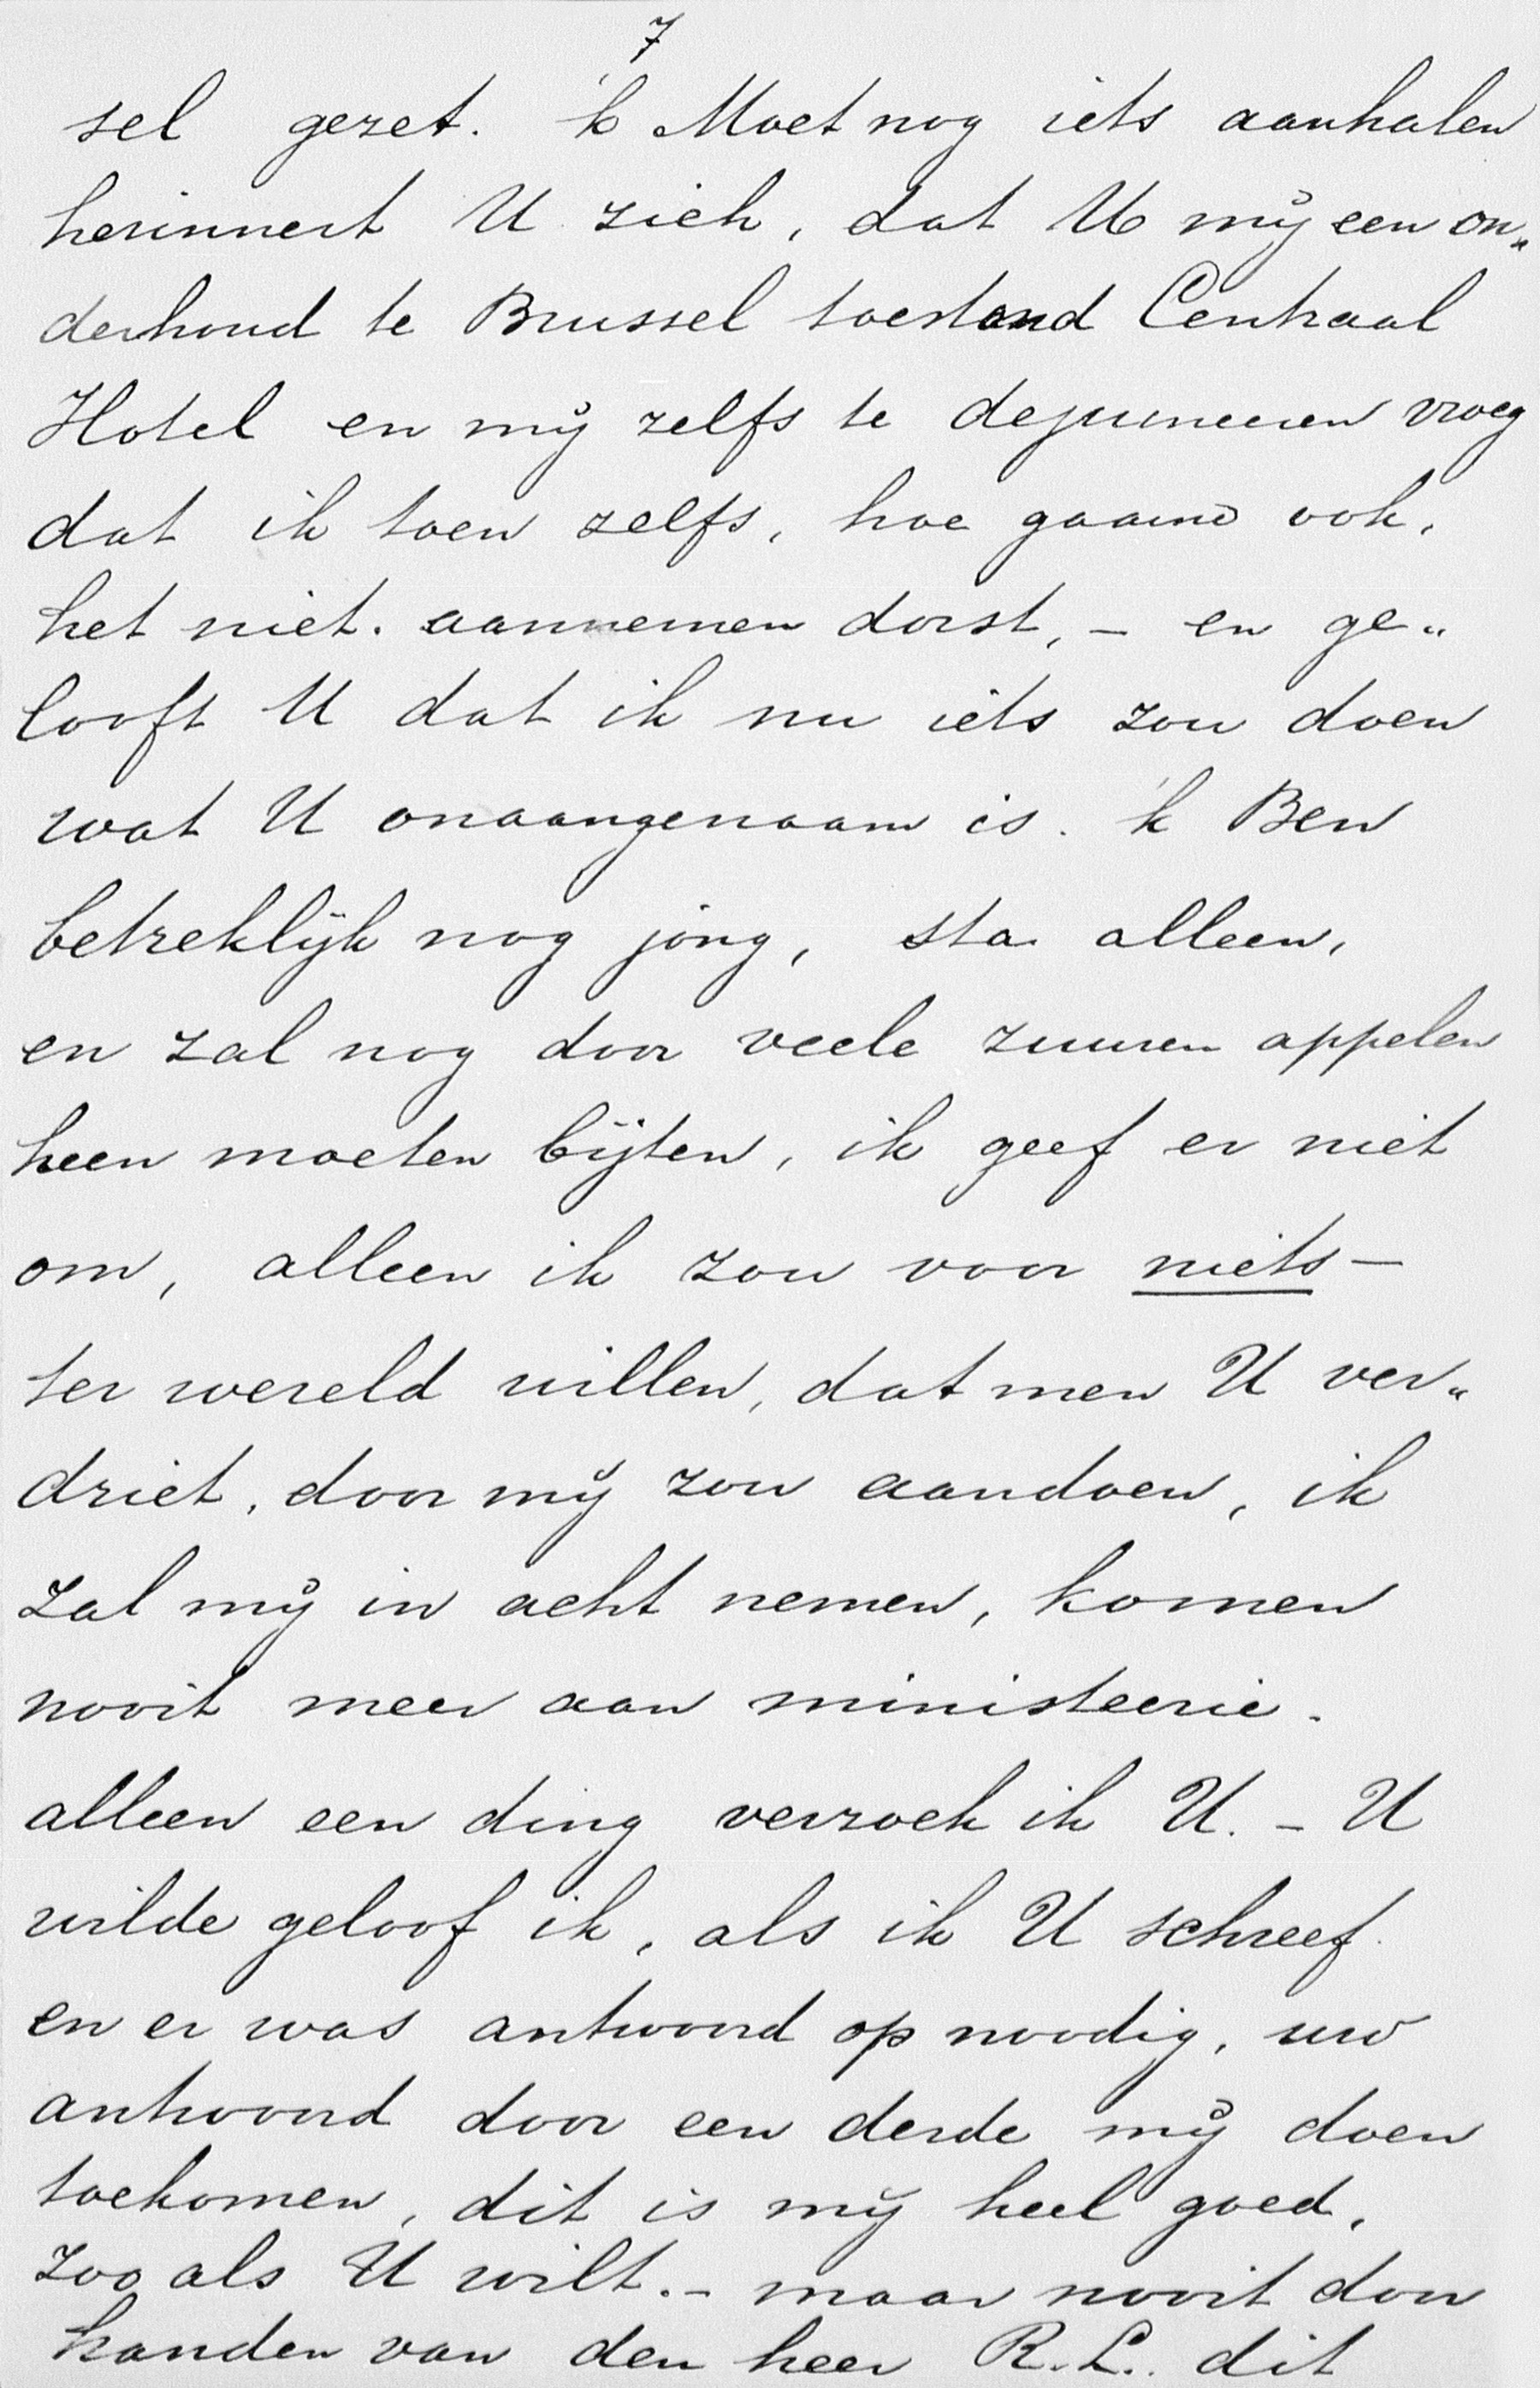 7
sel gezet. 'k Moet nog iets aanhalen
herinnert U zich, dat U mij een on„
derhoud te Brussel toestond Centraal
Hotel en mij zelfs te dejuneeren vroeg
dat ik toen zelfs, hoe gaarne ook,
het niet. aannemen dorst, – en ge„
looft U dat ik nu iets zou doen
wat U onaangenaam is. 'k Ben
betreklijk nog jong, sta alleen,
en zal nog door veele zuuren appelen
heen moeten bijten, ik geef er niet
om, alleen ik zou voor niets –
ter wereld willen, dat men U ver„
driet, door mij zou aandoen, ik
zal mij in acht nemen, komen
nooit meer aan ministeerie.
alleen een ding verzoek ik U. – U
wilde geloof ik, als ik U schreef.
en er was antwoord op noodig, uw
antwoord door een derde mij doen
toekomen, dit is mij heel goed,
zoo als U wilt. – maar nooit door
handen van den heer R.L. dit